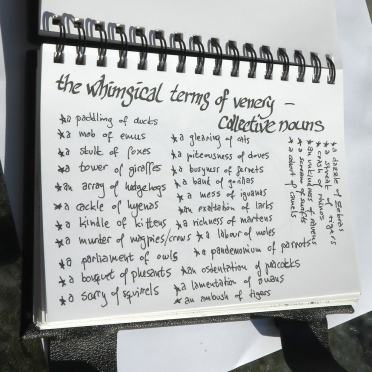 the whimsical terms of venery –
collective nouns
*a paddling of ducks
*a mob of emus
*a skulk of foxes
*a tower of giraffes
*an array of hedgehogs
*a cackle of hyenas
*a kindle of kittens
*a murder of magpies/crows
*a parliament of owls
*a bouquet of pheasants
*a scurry of squirrels
*a gleaming of cats
*a piteousness of doves
*a busyness of ferrets
*a band of gorillas
*a mess of iguanas
*an exaltation of larks
*a richness of martens
*a labour of moles
*a pandemonium of parrots
*an ostentation of peacocks
*a lamentation of swans
*an ambush of tigers
*a dazzle of zebras
*a streak of tigers
*a crash of rhinos
*an unkindness of ravens
*a scream of swifts
*a cohort of camels